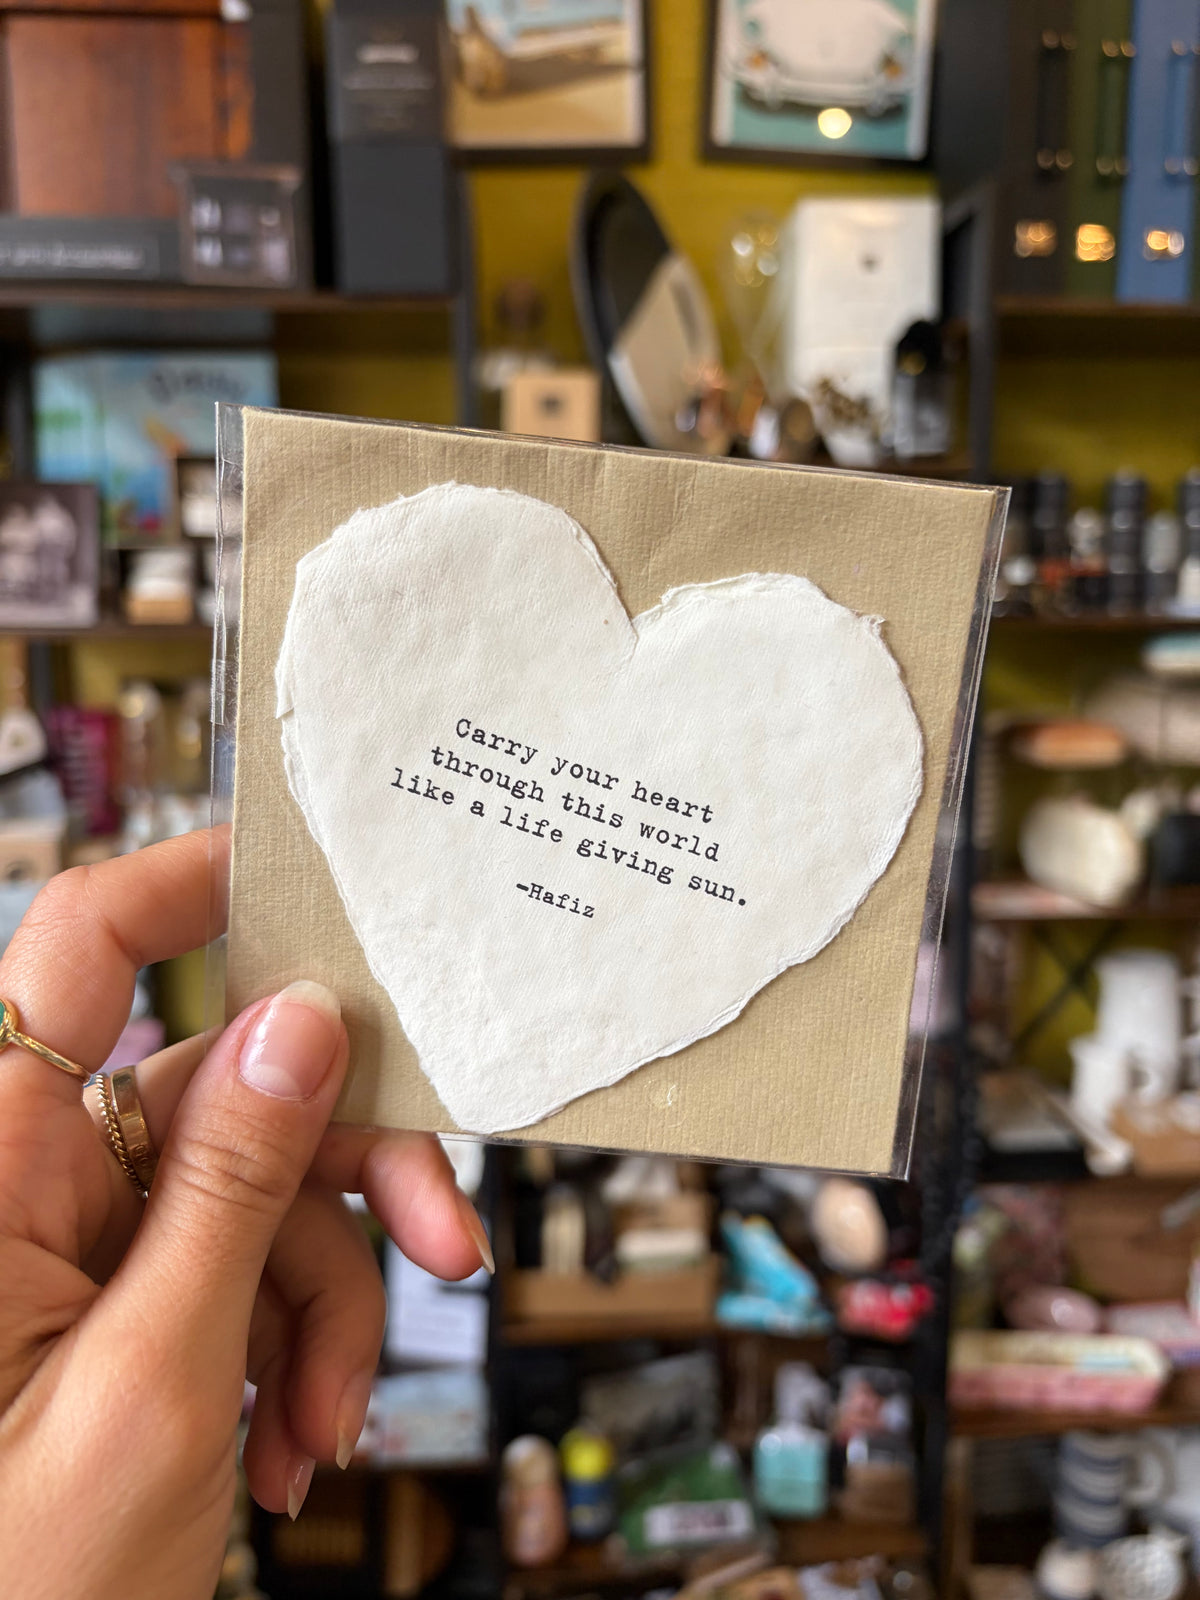 Carry your heart
through this world
like a life giving sun.
-Hafiz